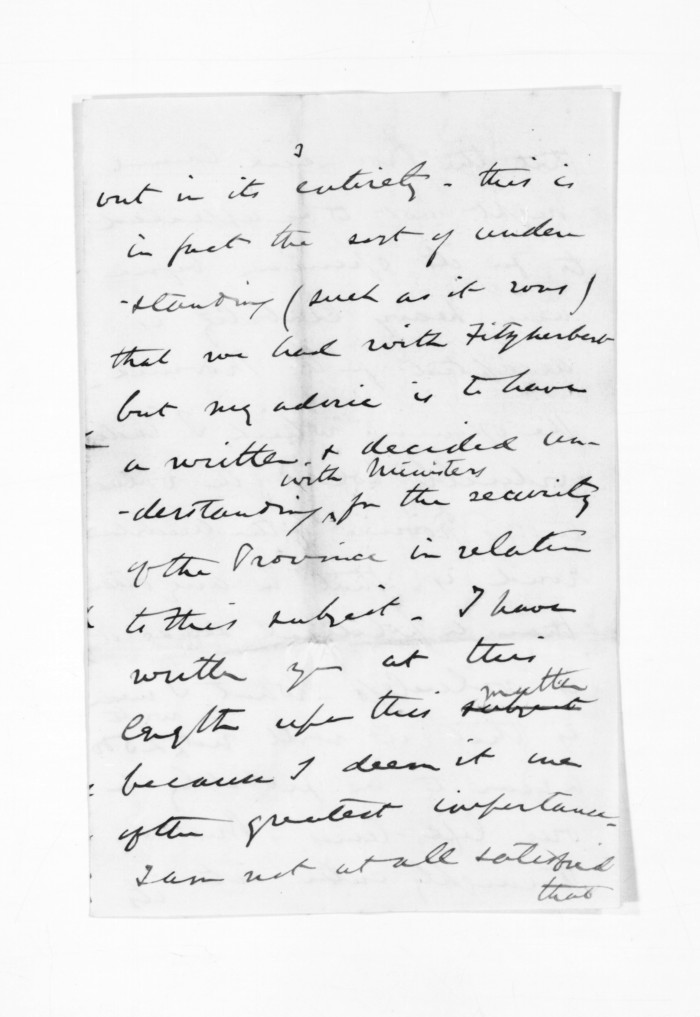 3
out in its entirety - this is
in fact the sort of under
-standing (such as it was)
that we had with Fitzherbert
but my advice is to have
a written & decided un-
with Ministers
-derstanding ^ for the security
of the Province in relation
to this subject - I have
written you at this
matter
length upon this subject
because I deem it one
of the greatest importance -
I am not at all satisfied
that